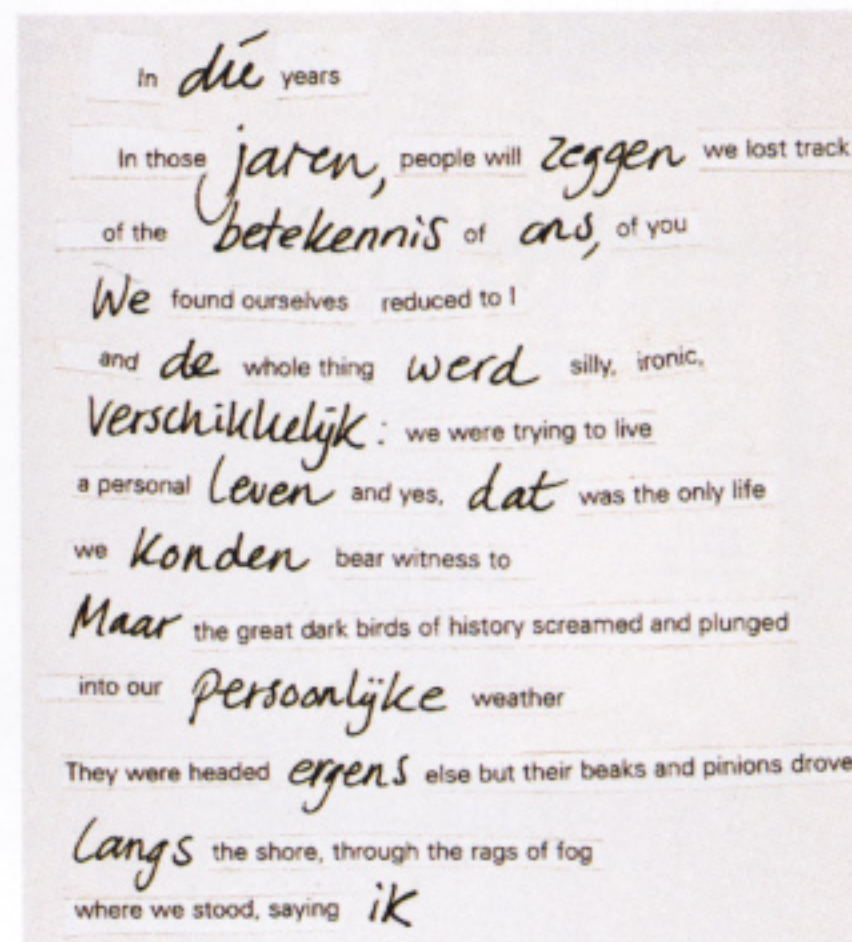 In díe years
In those jaren, people will zeggen we lost track
of the betekennis of ons, of you
We found ourselves reduced to I
and de whole thing werd silly, ironic,
Verschikkelijk: we were trying to live
a personal leven and yes, dat was the only life
we konden bear witness to
Maar the great dark birds of history screamed and plunged
into our persoonlijke weather
They were headed ergens else but their beaks and pinions drove
langs the shore, through the rags of fog
where we stood, saying ik